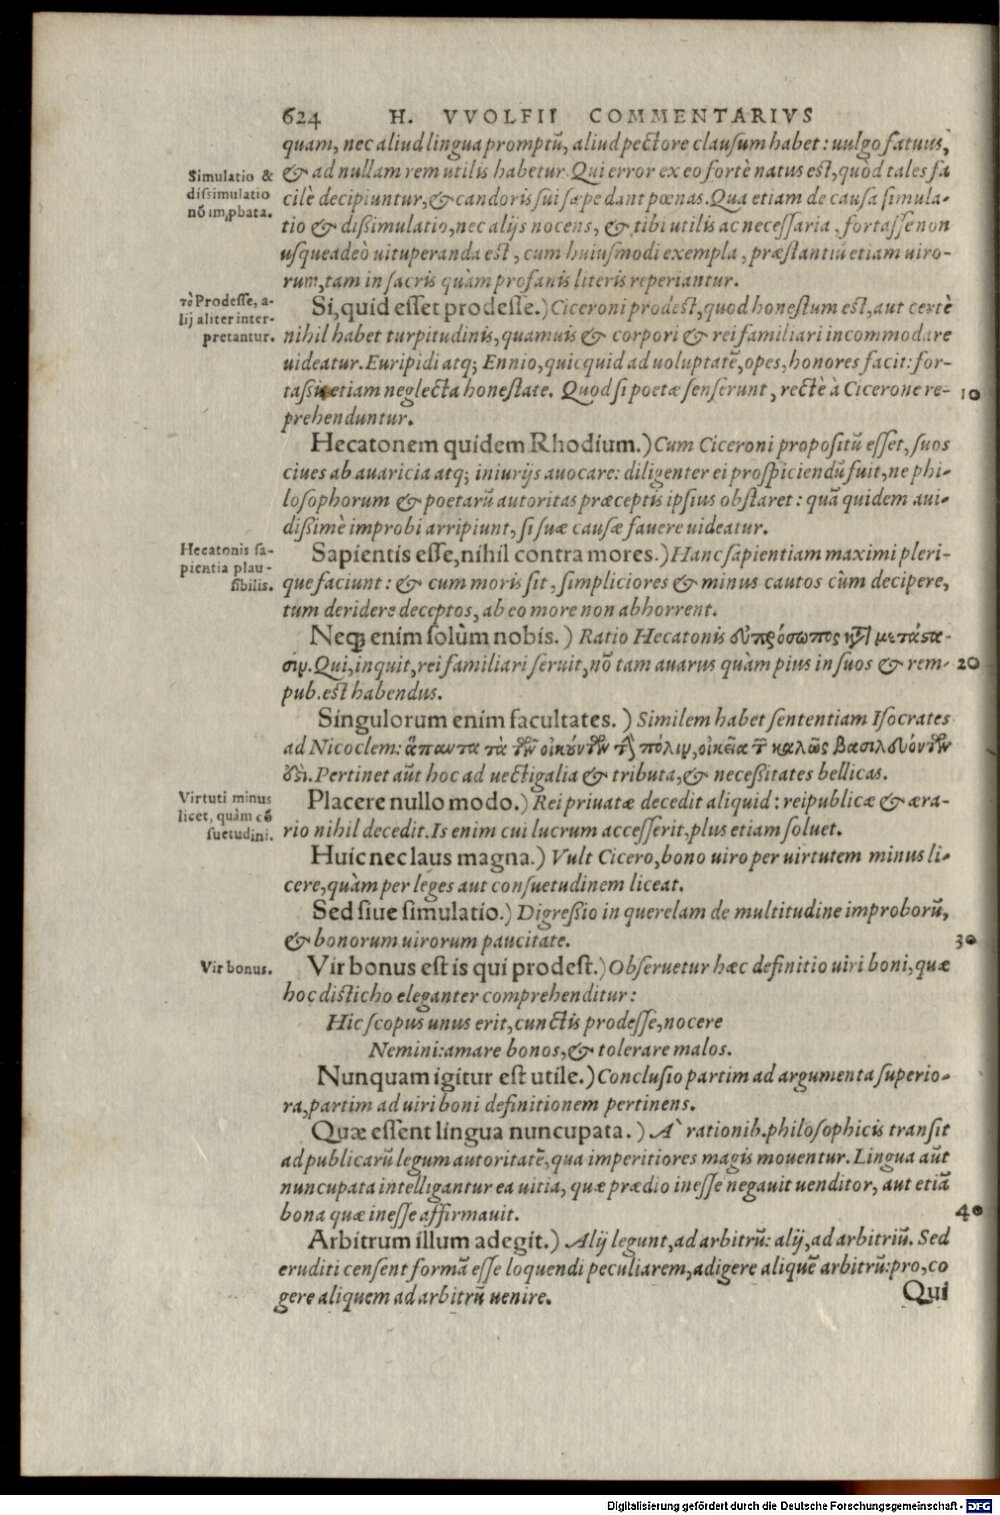 624 H. VVOLFII COMMENTARIVS
quam, nec aliud lingua promptũ, aliud pectore clausum habet: uulgo fatuus,
Simulatio & dissimulatio nõ improbata.
& ad nullam rem utilis habetur. Qui error ex eo fortè natus est, quòd tales fa
cilè decipiuntur, & candoris sui sæpe dant pœnas. Qua etiam de causa simula-
tio & dissimulatio, nec alijs nocens, & tibi utilis ac necessaria, fortasse non
usqueadeò uituperanda est, cum huiusmodi exempla, præstantiũ etiam uiro-
rum, tam in sacris quàm profanis literis reperiantur.
τὸ Prodesse, a-
lij aliter inter-
pretantur.
Si, quid esset prodesse.) Ciceroni prodest, quod honestum est, aut certè
nihil habet turpitudinis, quamuis & corpori & rei familiari incommodare
uideatur. Euripidi atq; Ennio, quicquid ad uoluptatẽ, opes, honores facit: for-
tassis etiam neglecta honestate. Quod si poetæ senserunt, rectè à Cicerone re- 10
prehenduntur.
Hecatonem quidem Rhodium.) Cum Ciceroni propositũ esset, suos
ciues ab auaricia atq; iniurijs auocare: diligenter ei prospiciendũ fuit, ne phi-
losophorum & poetarũ autoritas præceptis ipsius obstaret: quã quidem aui-
dissimè improbi arripiunt, si suæ causæ fauere uideatur.
Hecatonis sa-
pientia plau-
sibilis.
Sapientis esse, nihil contra mores.) Hanc sapientiam maximi pleri-
que faciunt: & cum moris sit, simpliciores & minus cautos cùm decipere,
tum deridere deceptos, ab eo more non abhorrent.
Neq; enim solùm nobis.) Ratio Hecatonis εὐπρόσωπος κατὰ μετάστα-
σιν. Qui, inquit, rei familiari seruit, nõ tam auarus quàm pius in suos & rem- 20
pub. est habendus.
Singulorum enim facultates.) Similem habet sententiam Isocrates
ad Nicoclem: ἅπαντα τὰ τῶν οἰκούντων τὴν πόλιν, οἰκεῖα τῶν καλῶς βασιλευόντων
ἐστί. Pertinet aũt hoc ad uectigalia & tributa, & necessitates bellicas.
Virtuti minus
licet, quàm cõ
suetudini.
Placere nullo modo.) Rei priuatæ decedit aliquid: reipublicæ & æra-
rio nihil decedit. Is enim cui lucrum accesserit, plus etiam soluet.
Huic nec laus magna.) Vult Cicero, bono uiro per uirtutem minus li-
cere, quàm per leges aut consuetudinem liceat.
Sed siue simulatio.) Digressio in querelam de multitudine improborũ,
& bonorum uirorum paucitate. 30
Vir bonus.
Vir bonus est is qui prodest.) Obseruetur hæc definitio uiri boni, quæ
hoc disticho eleganter comprehenditur:
Hic scopus unus erit, cunctis prodesse, nocere
Nemini: amare bonos, & tolerare malos.
Nunquam igitur est utile.) Conclusio partim ad argumenta superio-
ra, partim ad uiri boni definitionem pertinens.
Quæ essent lingua nuncupata.) A` rationib. philosophicis transit
ad publicarũ legum autoritatẽ, qua imperitiores magis mouentur. Lingua aũt
nuncupata intelligantur ea uitia, quæ prædio inesse negauit uenditor, aut etiã
bona quæ inesse affirmauit. 40
Arbitrum illum adegit.) Alij legunt, ad arbitrũ: alij, ad arbitriũ. Sed
eruditi censent formã esse loquendi peculiarem, adigere aliquẽ arbitrũ: pro, co
gere aliquem ad arbitrũ uenire.
Qui
Digitalisierung gefördert durch die Deutsche Forschungsgemeinschaft - DFG